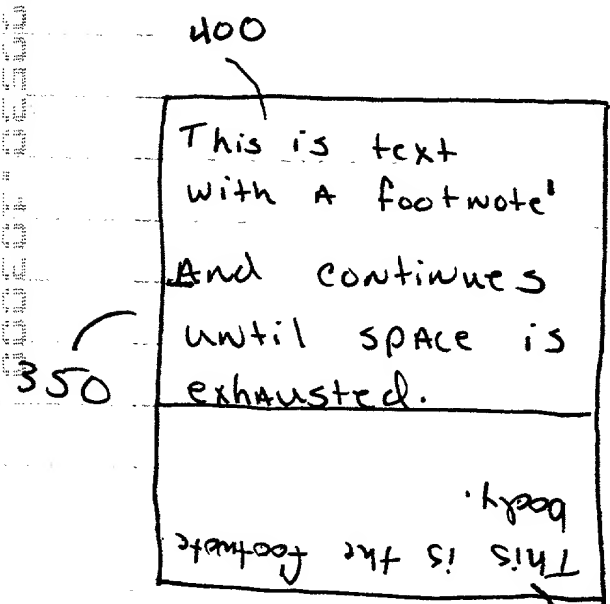 400
This is text
with A footnote¹
And continues
until space is
exhausted.
350
This is the footnote
body.